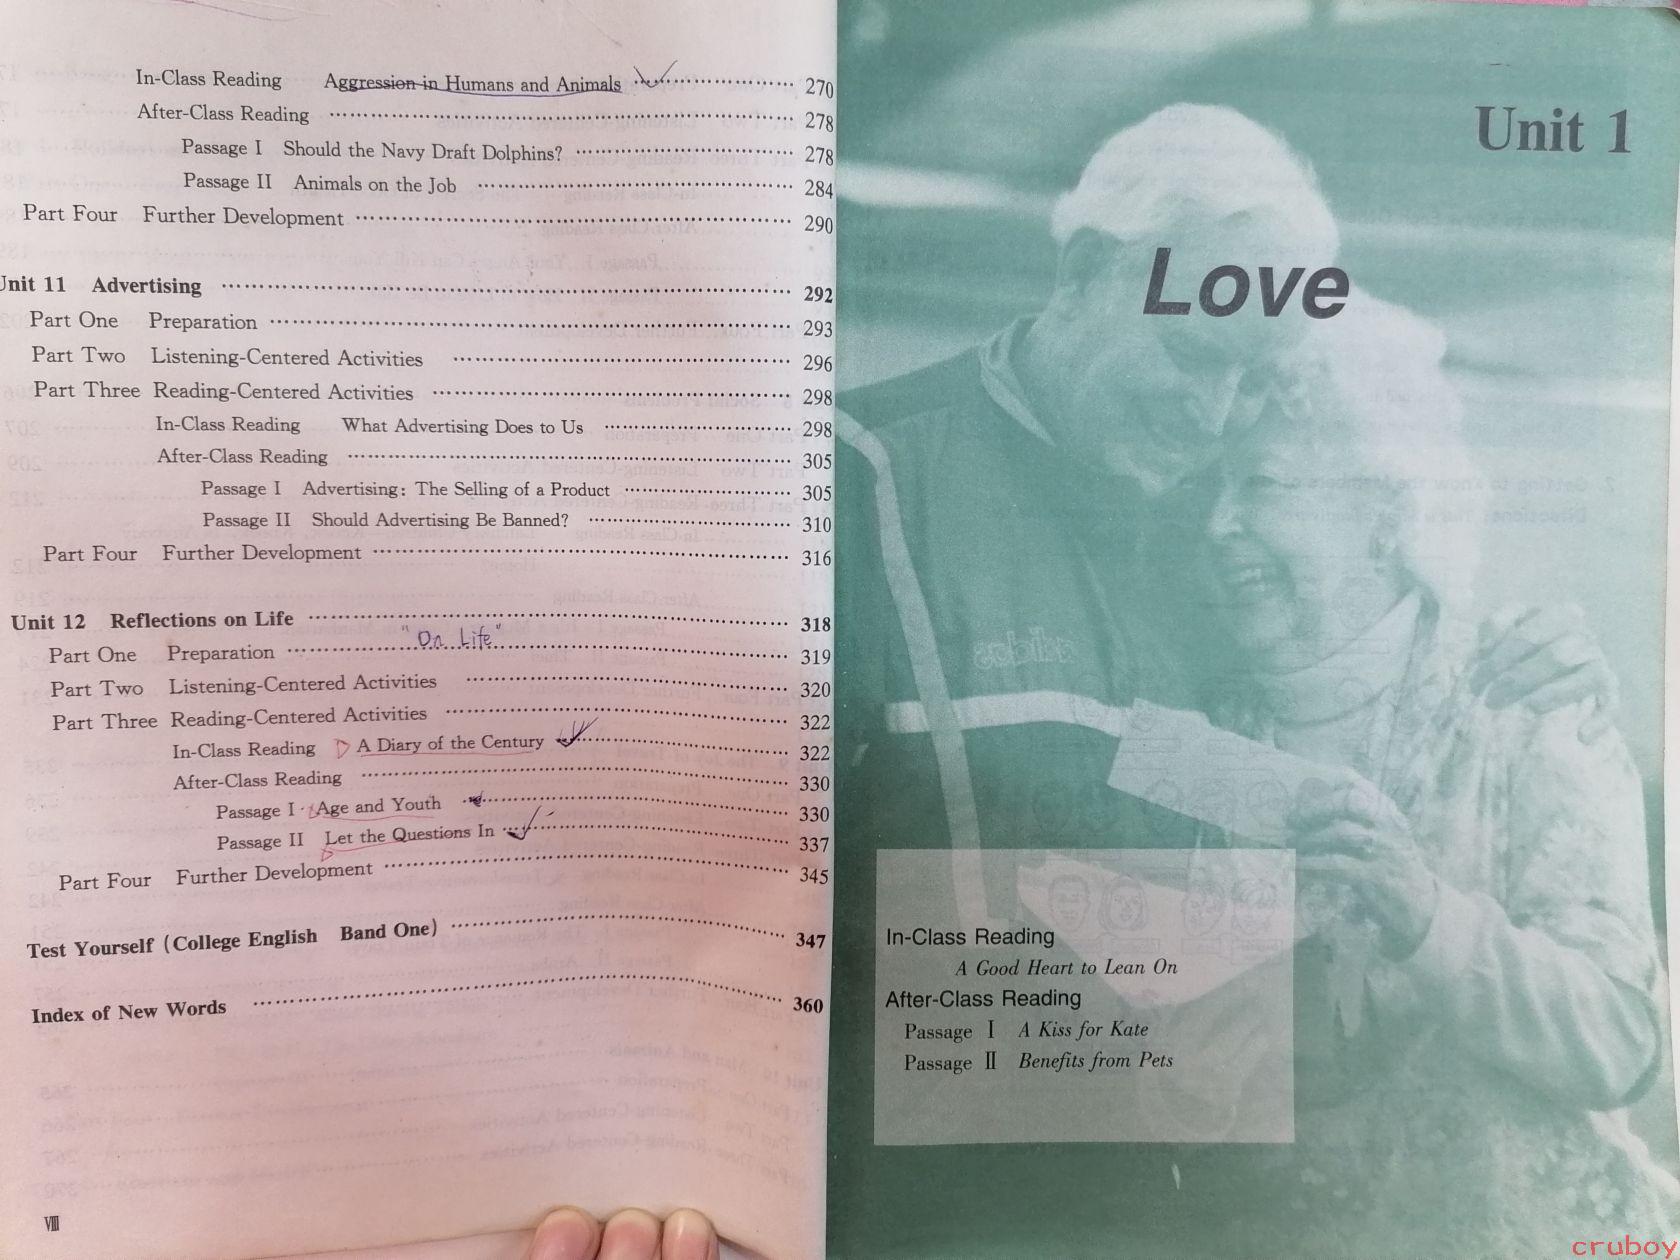 In-Class Reading Aggression in Humans and Animals 270
After-Class Reading 278
Passage I Should the Navy Draft Dolphins? 278
Passage II Animals on the Job 284
Part Four Further Development 290
Unit 11 Advertising 292
Part One Preparation 293
Part Two Listening-Centered Activities 296
Part Three Reading-Centered Activities 298
In-Class Reading What Advertising Does to Us 298
After-Class Reading 305
Passage I Advertising: The Selling of a Product 305
Passage II Should Advertising Be Banned? 310
Part Four Further Development 316
Unit 12 Reflections on Life 318
"On Life"
Part One Preparation 319
Part Two Listening-Centered Activities 320
Part Three Reading-Centered Activities 322
In-Class Reading A Diary of the Century 322
After-Class Reading 330
Passage I Age and Youth 330
Passage II Let the Questions In 337
Part Four Further Development 345
Test Yourself (College English Band One) 347
Index of New Words 360
VIII
Unit 1
Love
adidas
In-Class Reading
A Good Heart to Lean On
After-Class Reading
Passage I A Kiss for Kate
Passage II Benefits from Pets
cruboy